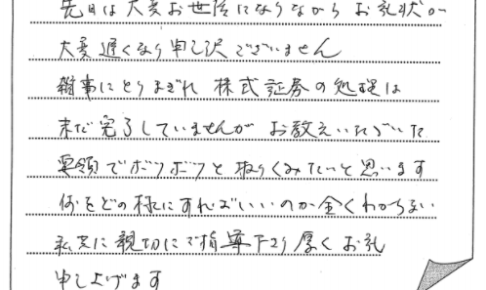 先日は大変お世話になりながら お礼状が
大変遅くなり申し訳でございません
雑事にとりまぎれ 株式証券の処理は
未だ完了していませんが お教えいただいた
要領でボツボツと取りくみたいと思います
何をどの様にすればいいのか全くわからない
私共に親切にご指導下さり厚くお礼
申し上げます